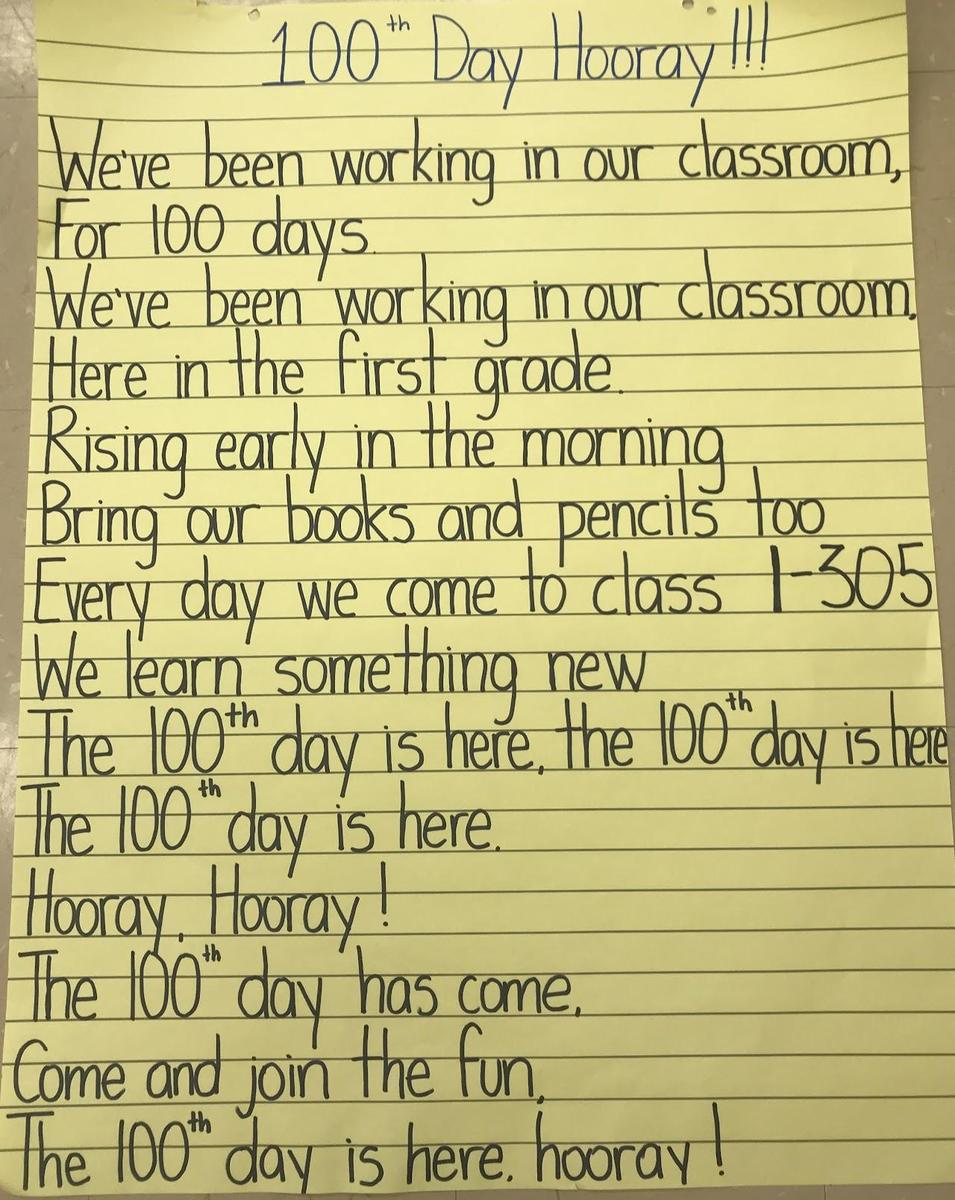 100th Day Hooray!!!
We've been working in our classroom,
For 100 days.
We've been working in our classroom,
Here in the first grade.
Rising early in the morning
Bring our books and pencils too
Every day we come to class 1-305
We learn something new
The 100th day is here, the 100th day is here
The 100th day is here.
Hooray, Hooray!
The 100th day has come,
Come and join the fun,
The 100th day is here, hooray!